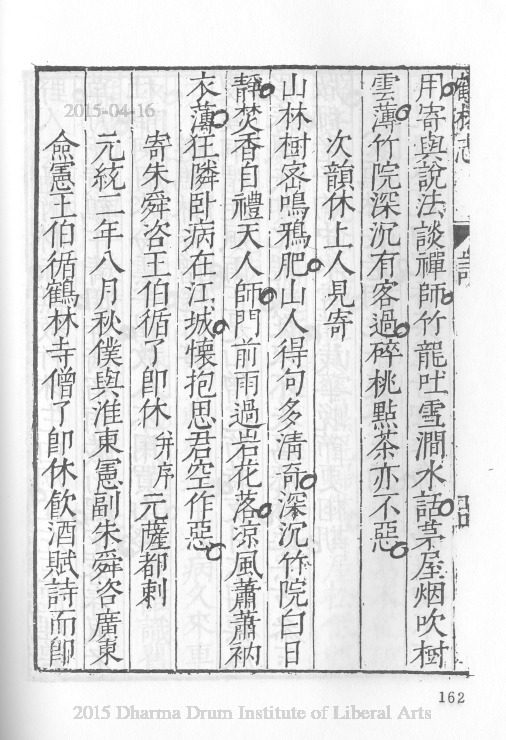 鶴林志
用寄與說法談禪師竹龍吐雪澗水話茅屋烟吹樹
雲薄竹院深沉有客過碎桃點茶亦不惡
次韻休上人見寄
山林樹密鳴鴉肥山人得句多清奇深沉竹院白日
靜焚香自禮天人師門前雨過岩花落涼風蕭蕭衲
衣薄狂隣臥病在江城懷抱思君空作惡
寄朱舜咨王伯循了卽休 并序 元薩都剌
元統二年八月秋僕與淮東憲副朱舜咨廣東
僉憲王伯循鶴林寺僧了卽休飮酒賦詩而卽
162
2015-04-16
2015 Dharma Drum Institute of Liberal Arts